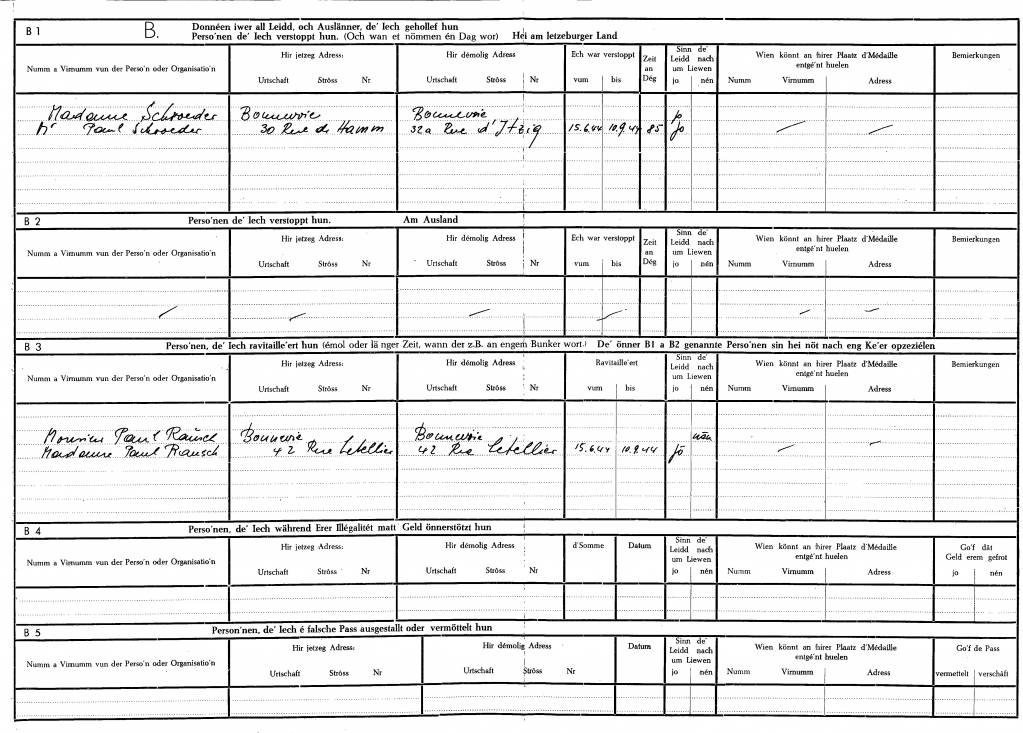 B 1 B. Donnéen iwer all Leidd, och Auslänner, de' Iech gehollef hun
Perso'nen de' Iech verstoppt hun. (Och wan et nömmen én Dag wor) Hei am letzeburger Land
Numm a Virnumm vun der Perso'n oder Organisatio'n Hir jetzeg Adress: Hir démolig Adress Ech war verstoppt Zeit an Dég Sinn de' Leidd nach um Liewen Wien könnt an hirer Plaatz d'Médaille entgé'nt huelen Bemierkungen
Urtschaft Ströss Nr Urtschaft Ströss Nr vum bis jo nén Numm Virnumm Adress
Madame Schroeder Bonnevoie Bonnevoie jo
Mr Paul Schroeder 30 Rue de Hamm 32a Rue d'Itzig 15.6.44 10.9.44 85 jo
B 2 Perso'nen de' Iech verstoppt hun. Am Ausland
Numm a Virnumm vun der Perso'n oder Organisatio'n Hir jetzeg Adress: Hir démolig Adress Ech war verstoppt Zeit an Dég Sinn de' Leidd nach um Liewen Wien könnt an hirer Plaatz d'Médaille entgé'nt huelen Bemierkungen
Urtschaft Ströss Nr Urtschaft Ströss Nr vum bis jo nén Numm Virnumm Adress
B 3 Perso'nen, de' Iech ravitaille'ert hun (émol oder länger Zeit, wann der z.B. an engem Bunker wort.) De' önner B1 a B2 genannte Perso'nen sin hei nöt nach eng Ke'er opzeziélen
Numm a Virnumm vun der Perso'n oder Organisatio'n Hir jetzeg Adress: Hir démolig Adress Ravitaille'ert Sinn de' Leidd nach um Liewen Wien könnt an hirer Plaatz d'Médaille entgé'nt huelen Bemierkungen
Urtschaft Ströss Nr Urtschaft Ströss Nr vum bis jo nén Numm Virnumm Adress
Monsieur Paul Rausch Bonnevoie Bonnevoie nän
Madame Paul Rausch 42 Rue Letellier 42 Rue Letellier 15.6.44 10.9.44 jö
B 4 Perso'nen, de' Iech während Erer Illégalitét matt Geld önnerstötzt hun
Numm a Virnumm vun der Perso'n oder Organisatio'n Hir jetzeg Adress: Hir démolig Adress d'Somme Datum Sinn de' Leidd nach um Liewen Wien könnt an hirer Plaatz d'Médaille entgé'nt huelen Go'f dât Geld erem gefrot
Urtschaft Ströss Nr Urtschaft Ströss Nr jo nén Numm Virnumm Adress jo nén
B 5 Person'nen, de' Iech é falsche Pass ausgestallt oder vermöttelt hun
Numm a Virnumm vun der Perso'n oder Organisatio'n Hir jetzeg Adress: Hir démolig Adress Datum Sinn de' Leidd nach um Liewen Wien könnt an hirer Plaatz d'Médaille entgé'nt huelen Go'f de Pass
Urtschaft Ströss Nr Urtschaft Ströss Nr jo nén Numm Virnumm Adress vermettelt verschäft